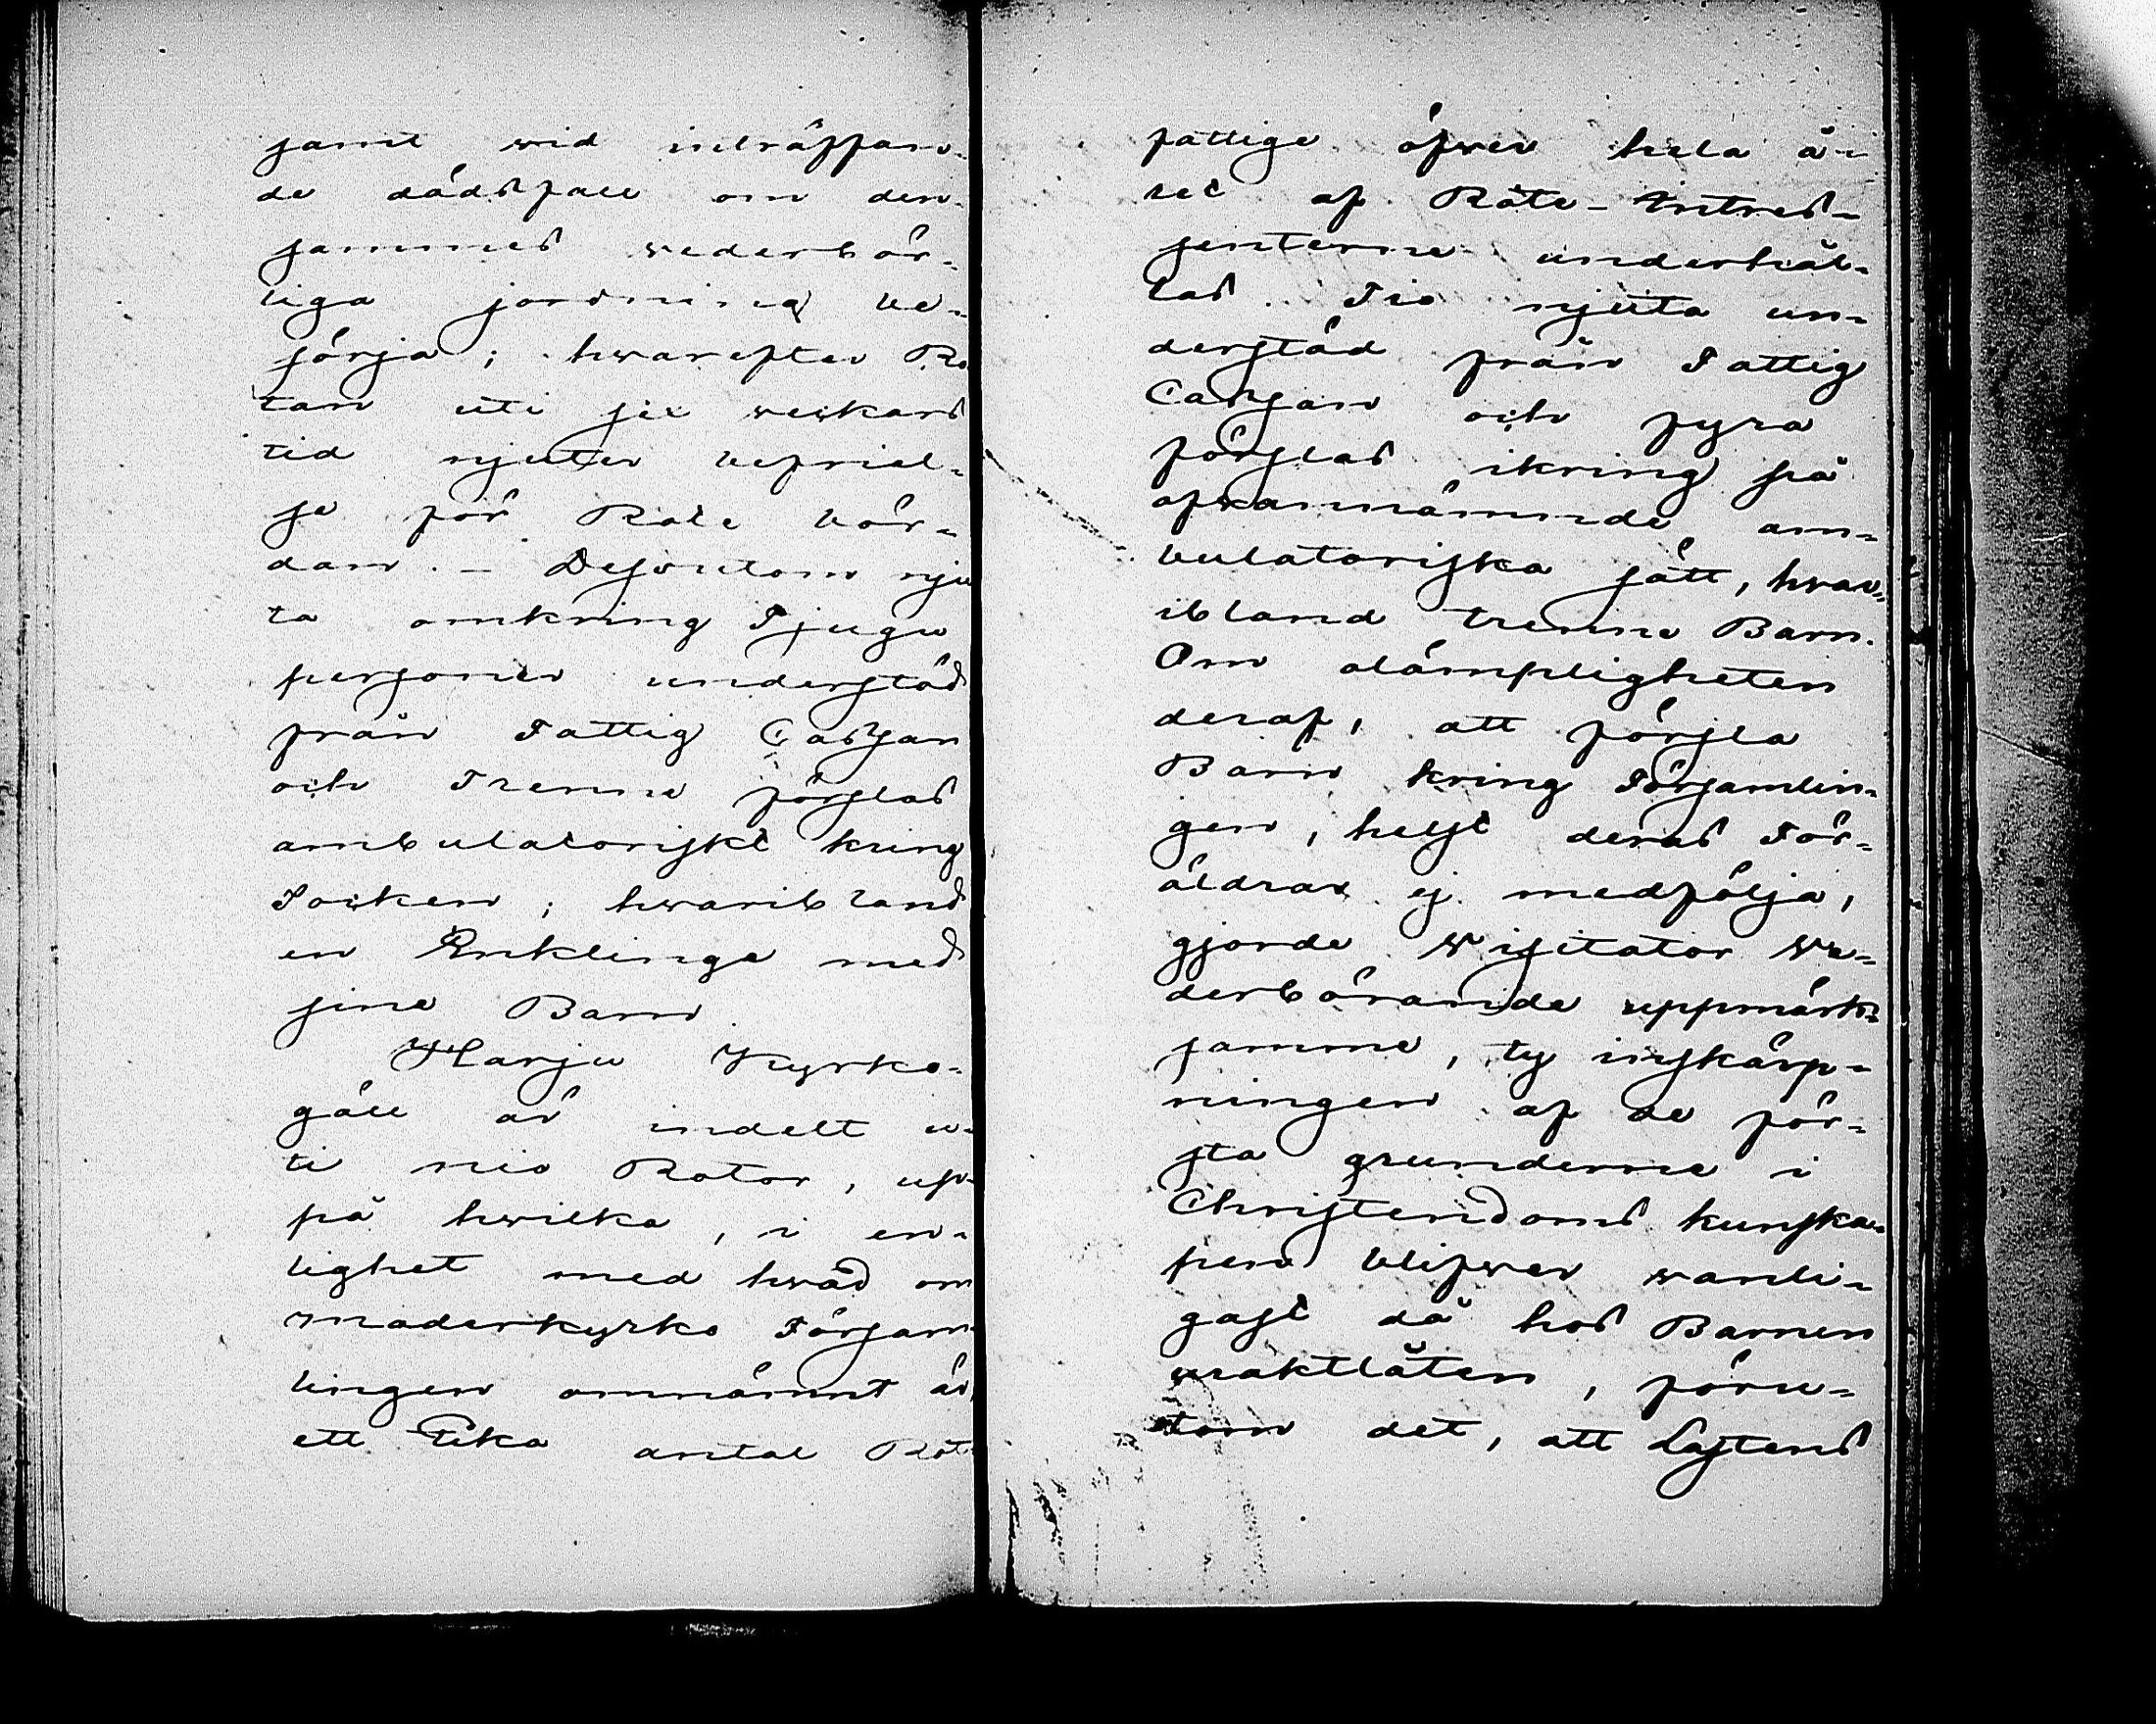 samt wid inträffan-
de dödsfall om den-
sammes wederbör-
liga jordning be-
sörja; hwarefter Ro
tan uti sex weckors
tid njuter befriel-
se för Rote bör-
dan. – Dessutom nju
ta omkring Tjugu
personer understöd
från Fattig Cassan
och Trenne förslas
ambulatoriskt kring
Socken; hwaribland
en Enklinge med
sine Barn
Harju Kyrko-
gäll är indelt u-
ti nio Rotor, up-
på hwilka, i en-
lighet med hwad om
moderkyrko Försam-
lingen omnämnt är,
ett lika antal Rot
fattige öfwer hela å-
ret af Rote-Intres-
senterne underhål-
las. Tio njuta un-
derstöd från Fattig
Cassan och fyra
förslas ikring på
ofwannämnde am-
bulatoriska sätt, hwar-
ibland trenne Barn.
Om olämpligheten
deraf, att försla
Barn kring Församlin-
gen, helst deras För-
äldrar ej medfölja,
gjorde Wisitator we-
derbörande uppmärk-
samme, ty inskärp-
ningen af de för-
sta grunderne i
Christendoms kunska-
pen blifwer wanli-
gast då hos Barnen
uraktlåten, föru-
tom det, att Lastens